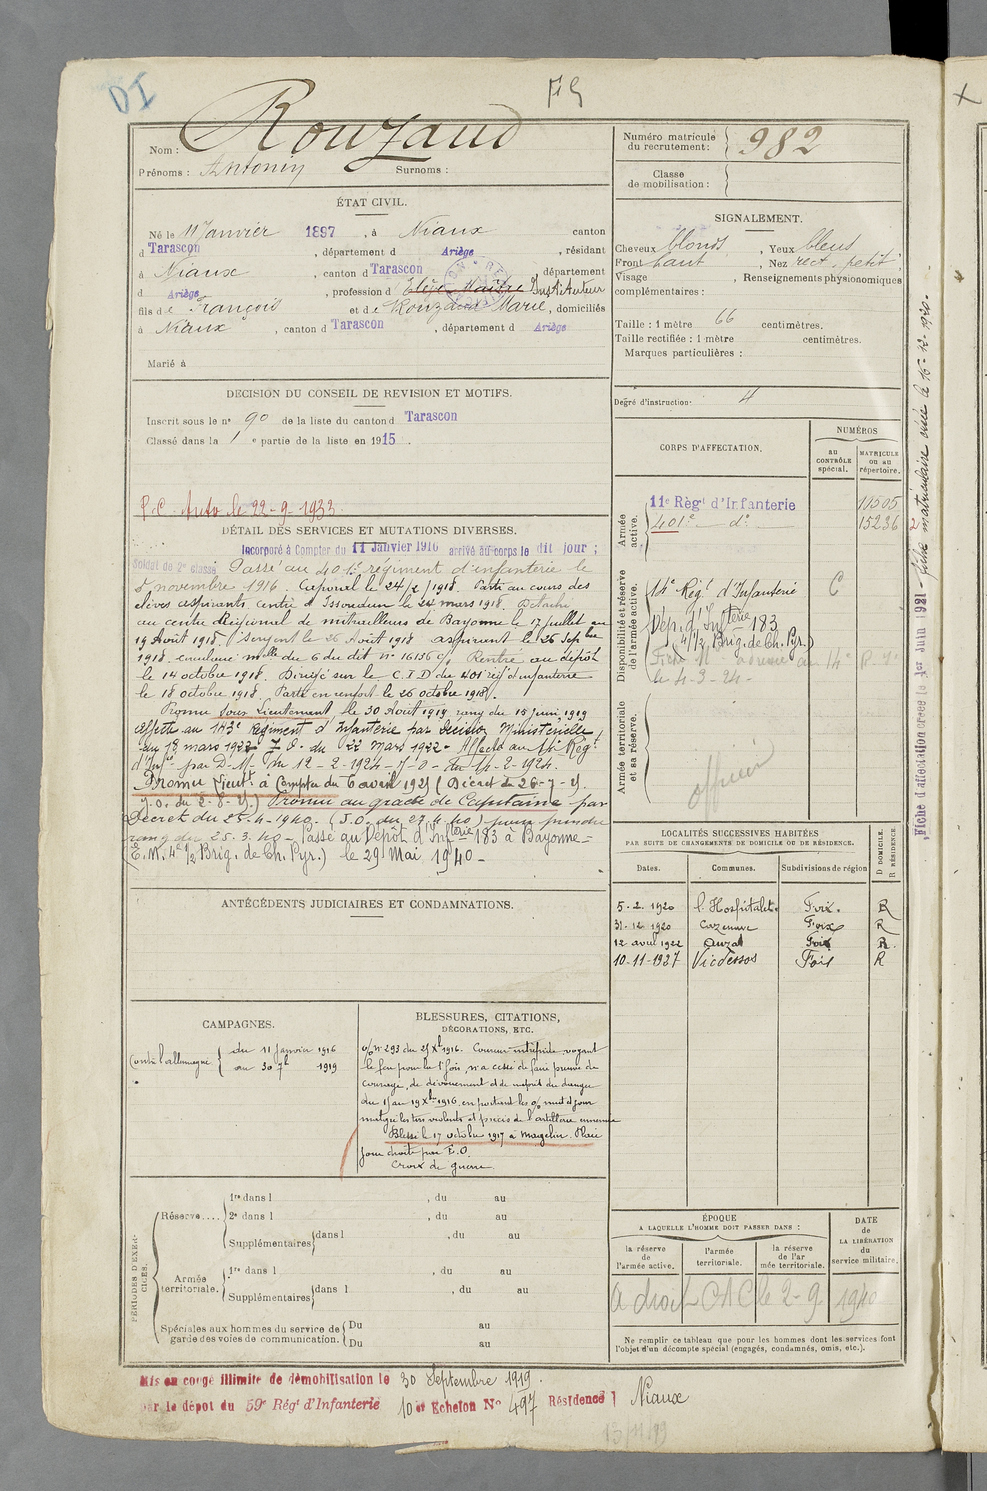 DI
FG
Nom : Rouzaud
Prénoms : Antonin Surnoms :
Numéro matricule du recrutement : 982
Classe de mobilisation :
ÉTAT CIVIL.
Né le 11 Janvier 1897, à Niaux canton
d Tarascon, département d Ariège, résidant
à Niaux, canton d Tarascon département
d Ariège, profession d Elève Maître Instituteur
fils de François et de Rouzaud Marie, domiciliés
à Niaux, canton d Tarascon, département d Ariège
Marié à
SIGNALEMENT.
Cheveux blonds, Yeux bleus
Front haut, Nez rect. petit
Visage , Renseignements physionomiques
complémentaires :
Taille : 1 mètre 66 centimètres.
Taille rectifiée : 1 mètre centimètres.
Marques particulières :
Degré d'instruction 4
DECISION DU CONSEIL DE REVISION ET MOTIFS.
Inscrit sous le n° 90 de la liste du canton d Tarascon
Classé dans la 1e partie de la liste en 1915.
P.C. Auto le 22-9-1933
DÉTAIL DES SERVICES ET MUTATIONS DIVERSES.
Incorporé à Compter du 11 Janvier 1916 arrivé au corps le dit jour ;
Soldat de 2e classe Passé au 401e régiment d'infanterie le
5 novembre 1916. Caporal le 24/2/1918. Parti au cours des
élèves aspirants centre d'Issoudun le 24 mars 1918. Détaché
au centre divisionel de mitrailleurs de Bayonne le 17 juillet au
19 Août 1918. Sergent le 26 Août 1918 aspirant le 26 Septbre
1918. du 6 du dit n° 16136 Rentré au dépôt
le 14 octobre 1918. Dirigé sur le C.I.D. du 401 régt d'infanterie
le 18 octobre 1918. Parti en renfort le 26 octobre 1918.
Promu sous Lieutenant le 30 Août 1919 rang du 15 juin 1919
affecté au 143e Régiment d'Infanterie par Décision Ministérielle
du 18 mars 1922 J.O. du 22 mars 1922. Affecté au 14e Régt
d'Infie par D.M. du 12-2-1924 J.O. du 14-2-1924.
Promu Lieutt à Compter du 6 avril 1925 (Décret du 26-7-25
J.O. du 2-8-25) Promu au grade de Capitaine par
Décret du 25-4-1940. (J.O. du 27.4.40) pour prendre
rang du 25.3.40 - Passé au Dépôt d'Infterie 183 à Bayonne =
(E.M. 4e 1/2 Brig. de Ch. Pyr.) le 29 Mai 1940 -
CORPS D'AFFECTATION.
NUMÉROS
au CONTRÔLE spécial.
MATRICULE ou au répertoire.
Armée active.
11e Régt d'Infanterie 19505
401e - do - 15236
Disponibilité et réserve de l'armée active.
14e Régt d'Infanterie C
Dép. d'Infterie 183
(4e 1/2 Brig. de Ch. Pyr.)
adressée au 14e R.I.
le 4-3-24 -
Armée territoriale et sa réserve.
officier
LOCALITÉS SUCCESSIVES HABITÉES
PAR SUITE DE CHANGEMENTS DE DOMICILE OU DE RÉSIDENCE.
Dates. Communes. Subdivisions de région D DOMICILE. R RÉSIDENCE.
5-2-1920 l'Hospitalet. Foix. R
31-12-1920 Cazenave Foix R
12 avril 1922 Auzat Foix R.
10-11-1927 Vicdessos Foix R
ANTÉCÉDENTS JUDICIAIRES ET CONDAMNATIONS.
CAMPAGNES.
Contre l'allemagne du 11 Janvier 1916
au 30 7b 1919
BLESSURES, CITATIONS,
DÉCORATIONS, ETC.
n° 293 du 25 Xb 1916. Coureur intrépide voyant
le feu pour la 1e fois, n'a cessé de faire preuve de
courage, de dévouement et de mépris du danger
du 15 au 19 Xbre 1916 en portant les nuit et jour
malgré les tirs violents et précis de l'artillerie ennemie
Blessé le 17 octobre 1917 à Plaie
joue droite par E.O.
Croix de guerre
PÉRIODES D'EXERCICES.
Réserve.... 1re dans l , du au
2e dans l , du au
Supplémentaires dans l , du au
Armée territoriale. 1re dans l , du au
Supplémentaires dans l , du au
Spéciales aux hommes du service de garde des voies de communication. Du au
Du au
ÉPOQUE
A LAQUELLE L'HOMME DOIT PASSER DANS :
la réserve de l'armée active.
l'armée territoriale.
la réserve de l'armée territoriale.
DATE DE LA LIBÉRATION du service militaire.
A droit CAC le 2-9 1940
Ne remplir ce tableau que pour les hommes dont les services font
l'objet d'un décompte spécial (engagés, condamnés, omis, etc.).
Mis en congé illimité de démobilisation le 30 Septembre 1919.
par le dépôt du 59e Régt d'Infanterie 10e Echelon N° 497 Résidence Niaux
Fiche d'affectation créée le 1er Juin 1921 - fiche matriculaire créée le 16-12-1920.